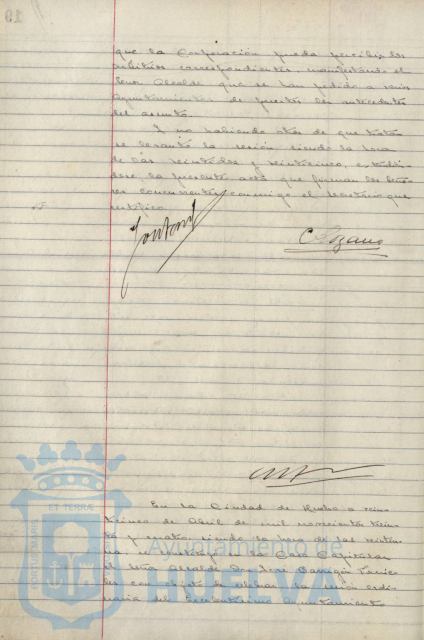 que la Corporación pueda percibir los
arbitrios correspondientes, manifestando el
Señor Alcalde que se han pedido a varios
Ayuntamientos de puertos los antecedentes
del asunto.
Y no habiendo otros de que tratar
se levantó la sesión siendo la hora
de las veintidos y veinticinco, extendién-
dose la presente acta que firman los Seño-
res concurrentes conmigo el Secretario que
certifico.
C Lozano
En la Ciudad de Huelva a vein-
ticinco de Abril de mil novecientos trein-
ta y cuatro, siendo la hora de las veintiu-
na, se constituyó en las Casas Capitular
el Señor Alcalde Don José Barrigón
con objeto de celebrar la sesión ordi-
naria del Excelentísimo Ayuntamiento
ET TERRÆ
PORTUS MARIS
Ayuntamiento de
HUELVA